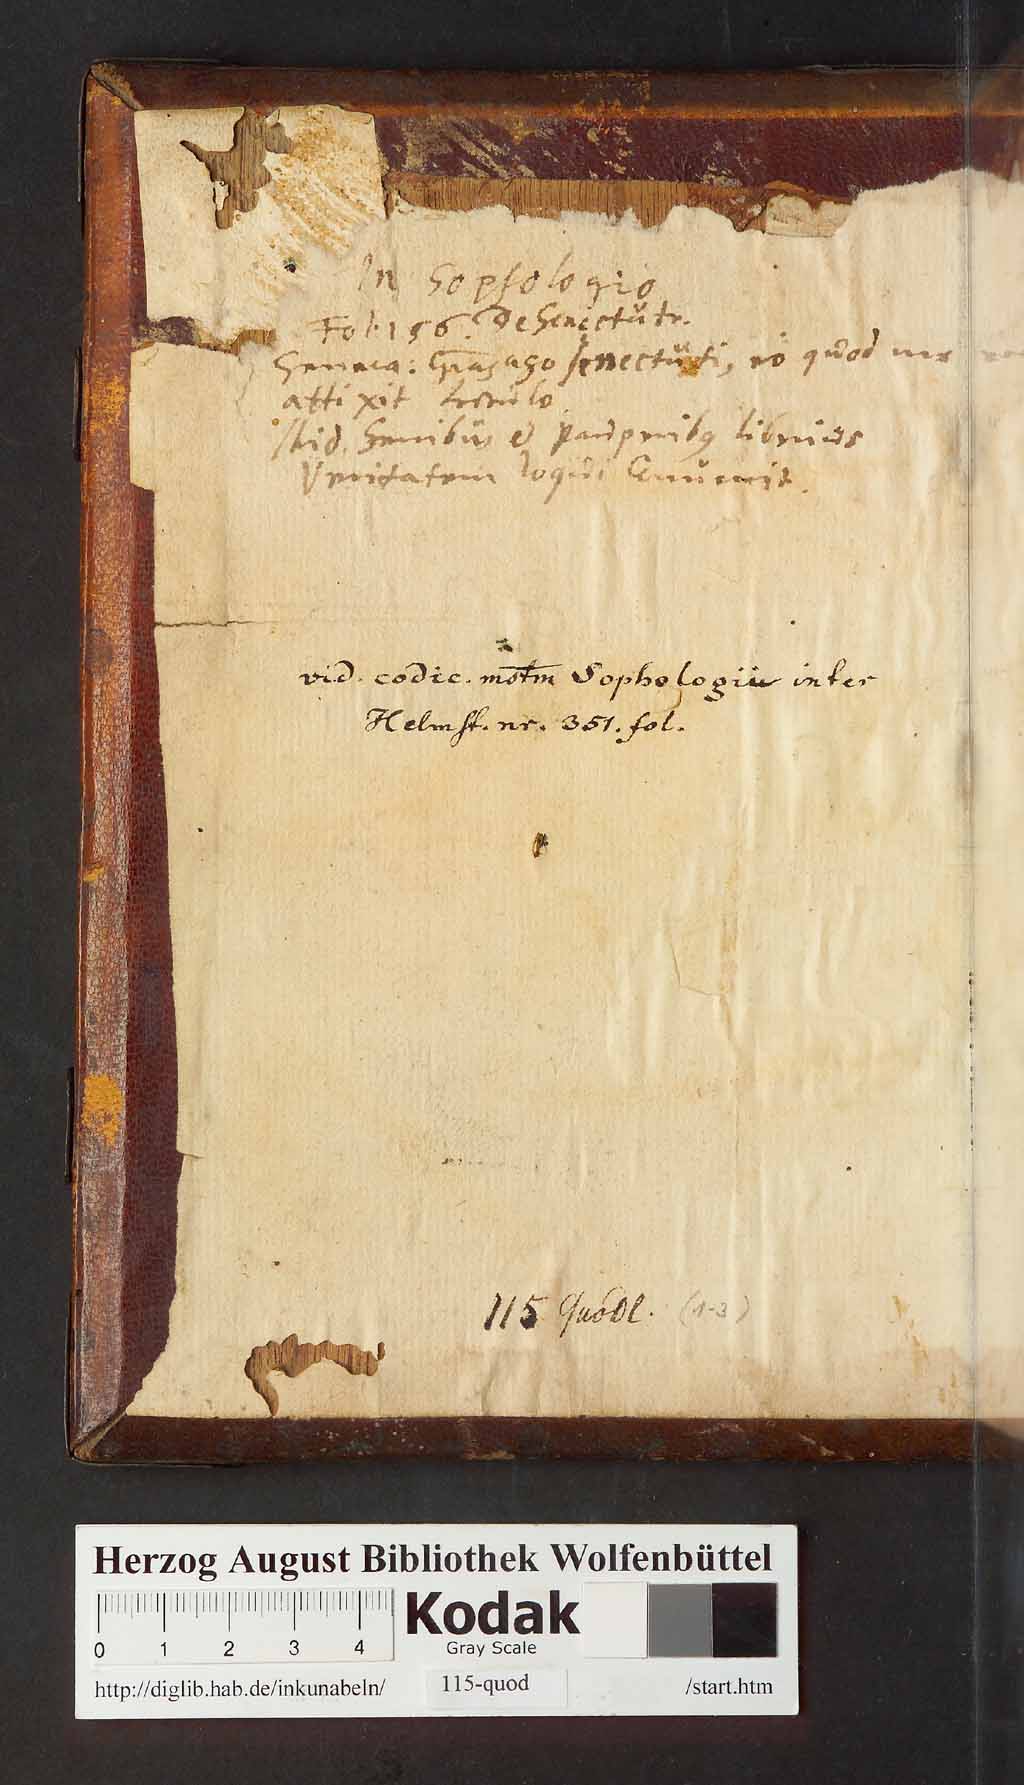 In Sophologio
Fol. 156. De Senectute.
Seneca: Gr̄as ago senectuti, eo quod me
attixit lectulo
Ibid. Senibus et pauperibq liberius
Veritatem loqui Conuenit.
vid. codic. mstm Sophologiu inter
Helmst. nr. 351. fol.
115 Quodl. (1-3)
Herzog August Bibliothek Wolfenbüttel
0 1 2 3 4
Kodak
Gray Scale
http://diglib.hab.de/inkunabeln/ 115-quod /start.htm